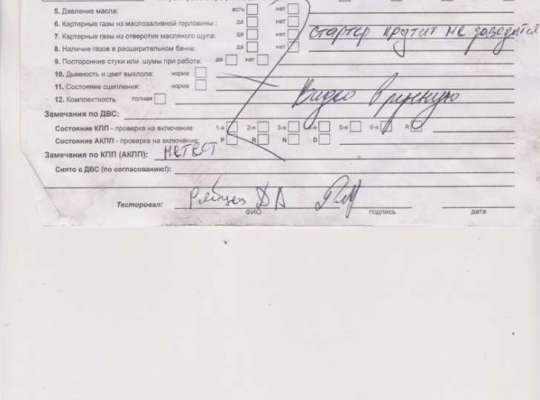 5. Давление масла: есть нет
6. Картерные газы из маслозаливной горловины : да нет
стартер крутит не заводится
7. Картерные газы из отверотия масляного щупа: да нет
8. Наличие газов в расширительном бачке: да нет
9. Посторонние стуки или шумы при работе: да нет
10. Дымность и цвет выхлопа: норма
11. Состояние сцепления: норма
Видео вручную
12. Комплектность полная
Замечания по ДВС:
Состояние КПП - проверка на включение: 1-я 2-я 3-я 4-я 5-я 6-я R
Состояние АКПП - проверка на включение: P R N D
Замечания по КПП (АКПП): НЕТЕСТ
Снято с ДВС (по согласованию!):
Тестировал: ДА
ФИО подпись дата